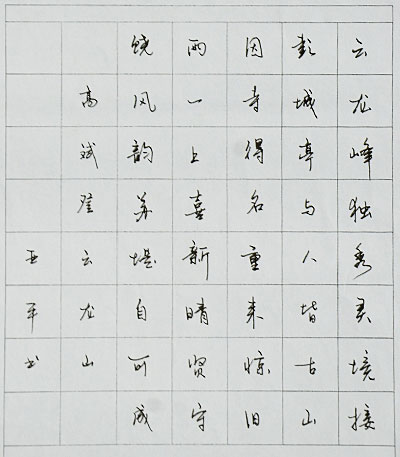 云龙峰独秀灵境接
彭城亭与人皆古山
因寺得名重来惊旧
雨一上喜新晴贤守
饶风韵苏堤自可成
高斌登云龙山
亚军书